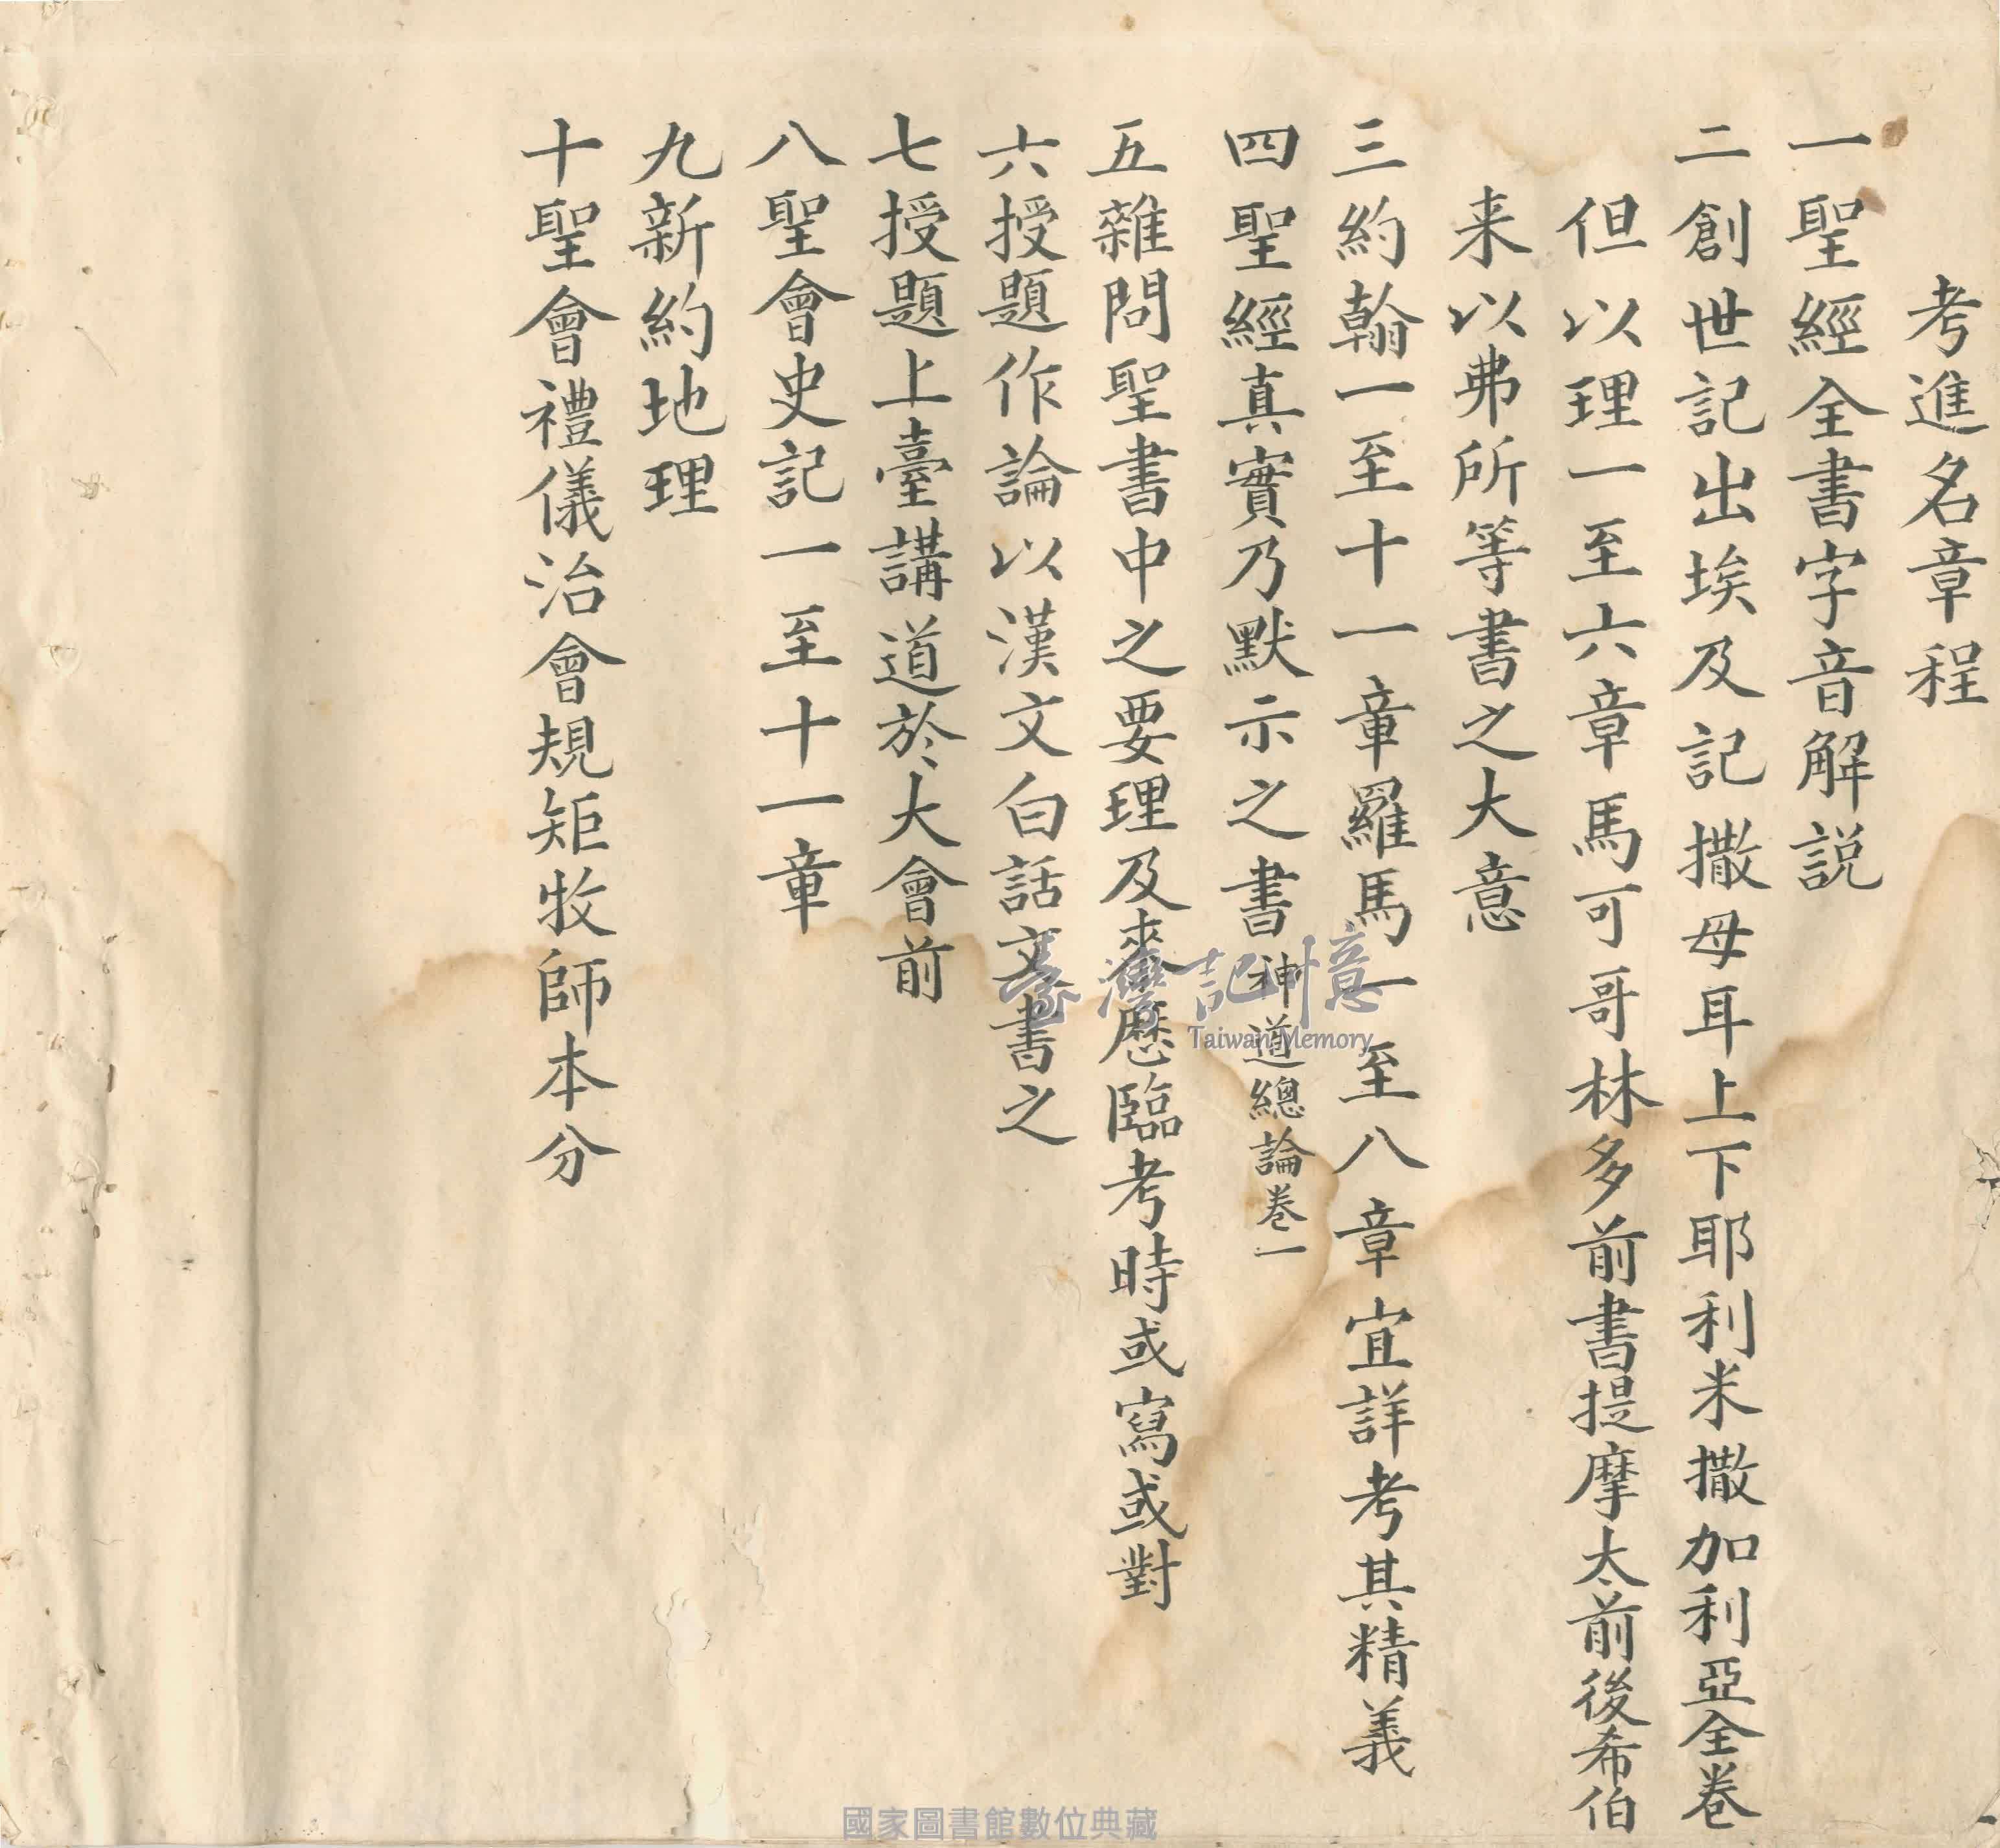 考進名章程
一聖經全書字音解説
二創世記出埃及記撒母耳上下耶利米撒加利亞全卷
但以理一至六章馬可哥林多前書提摩太前後希伯
来以弗所等書之大意
三約翰一至十一章羅馬一至八章宜詳考其精義
四聖經真實乃默示之書神道總論卷一
五雜問聖書中之要理及來歷臨考時或寫或對
六授題作論以漢文白話文書之
七授題上臺講道於大會前
八聖會史記一至十一章
九新約地理
十聖會禮儀治會規矩牧師本分
臺灣記憶
Taiwan Memory
國家圖書館數位典藏